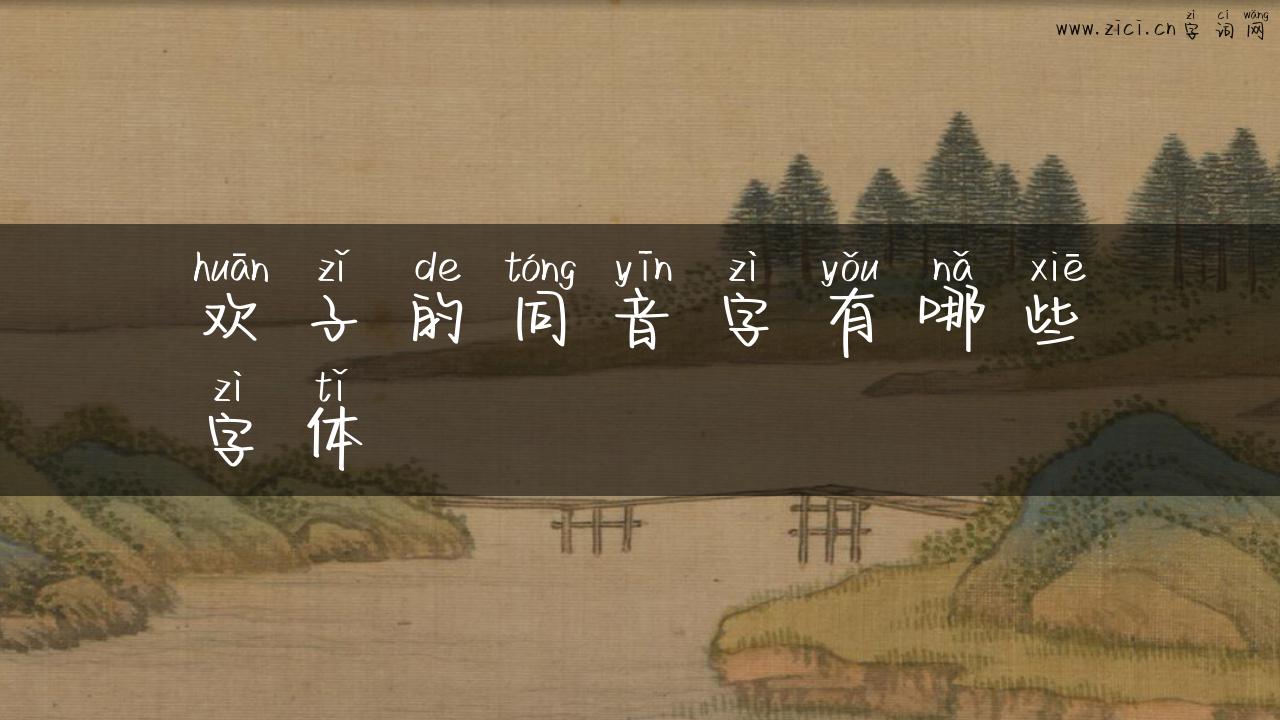 zì cí wǎng
www.zici.cn 字词网
huān zǐ de tóng yīn zì yǒu nǎ xiē
欢子的同音字有哪些
zì tǐ
字体